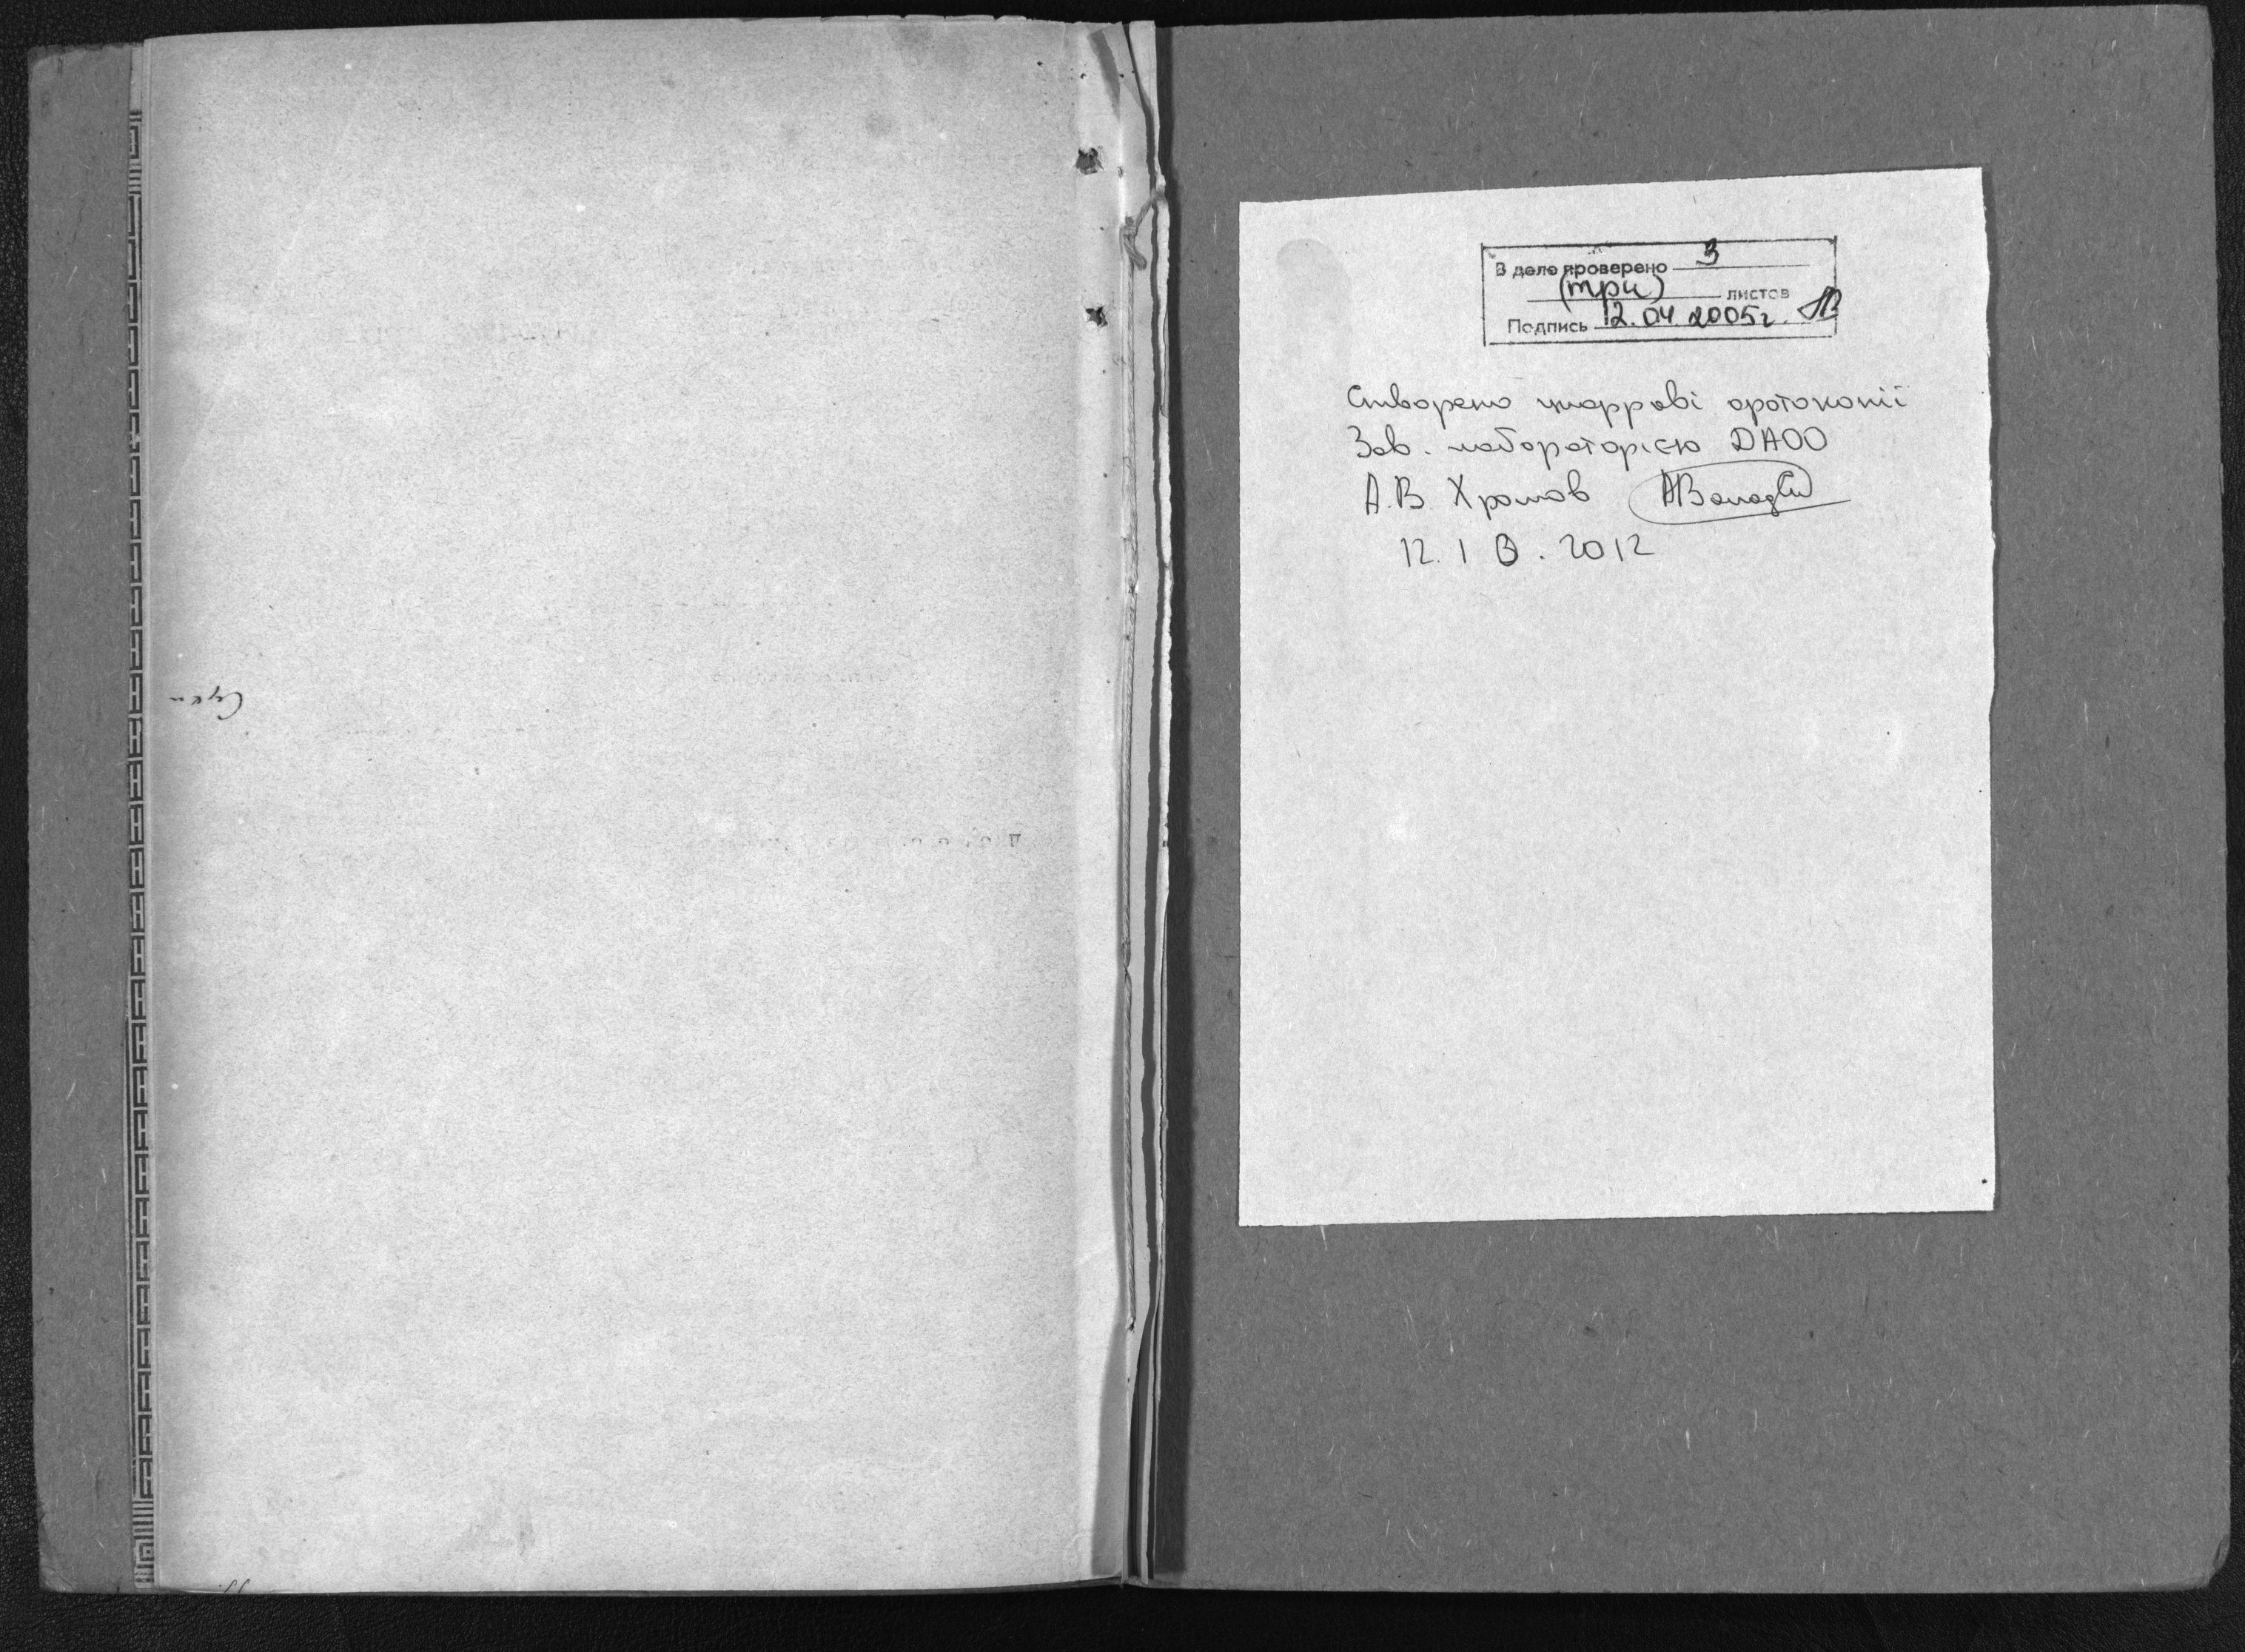 В деле проверено 3
(три) листов
Подпись 12.04.2005г.
Створено цифрові фотокопії
Зав. лабораторією ДАОО
А.В. Хромов